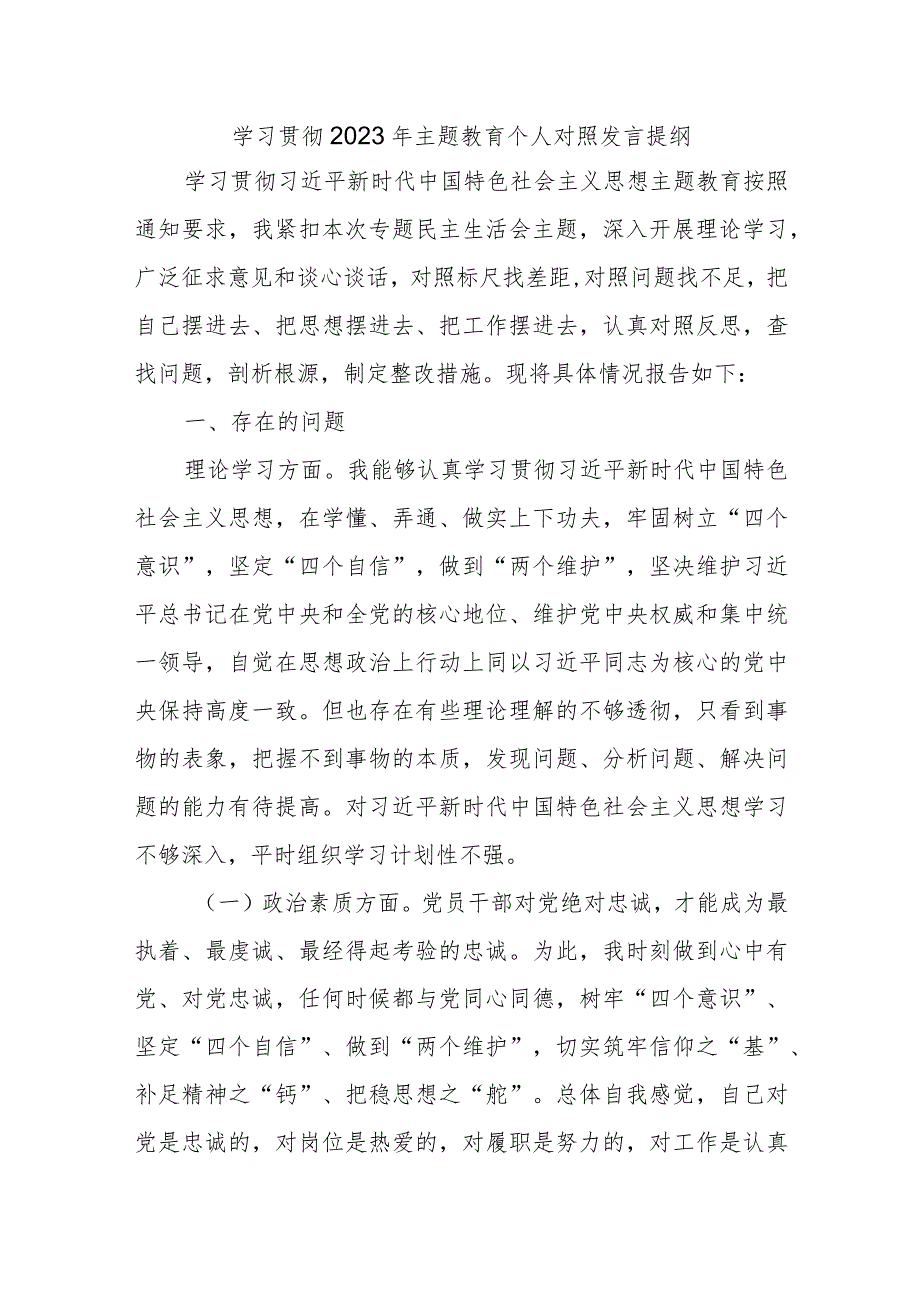 学习贯彻2023年主题教育个人对照发言提纲
学习贯彻习近平新时代中国特色社会主义思想主题教育按照
通知要求，我紧扣本次专题民主生活会主题，深入开展理论学习，
广泛征求意见和谈心谈话，对照标尺找差距,对照问题找不足，把
自己摆进去、把思想摆进去、把工作摆进去，认真对照反思，查
找问题，剖析根源，制定整改措施。现将具体情况报告如下：
一、存在的问题
理论学习方面。我能够认真学习贯彻习近平新时代中国特色
社会主义思想，在学懂、弄通、做实上下功夫，牢固树立“四个
意识”，坚定“四个自信”，做到“两个维护”，坚决维护习近
平总书记在党中央和全党的核心地位、维护党中央权威和集中统
一领导，自觉在思想政治上行动上同以习近平同志为核心的党中
央保持高度一致。但也存在有些理论理解的不够透彻，只看到事
物的表象，把握不到事物的本质，发现问题、分析问题、解决问
题的能力有待提高。对习近平新时代中国特色社会主义思想学习
不够深入，平时组织学习计划性不强。
（一）政治素质方面。党员干部对党绝对忠诚，才能成为最
执着、最虔诚、最经得起考验的忠诚。为此，我时刻做到心中有
党、对党忠诚，任何时候都与党同心同德，树牢“四个意识”、
坚定“四个自信”、做到“两个维护”，切实筑牢信仰之“基”、
补足精神之“钙”、把稳思想之“舵”。总体自我感觉，自己对
党是忠诚的，对岗位是热爱的，对履职是努力的，对工作是认真